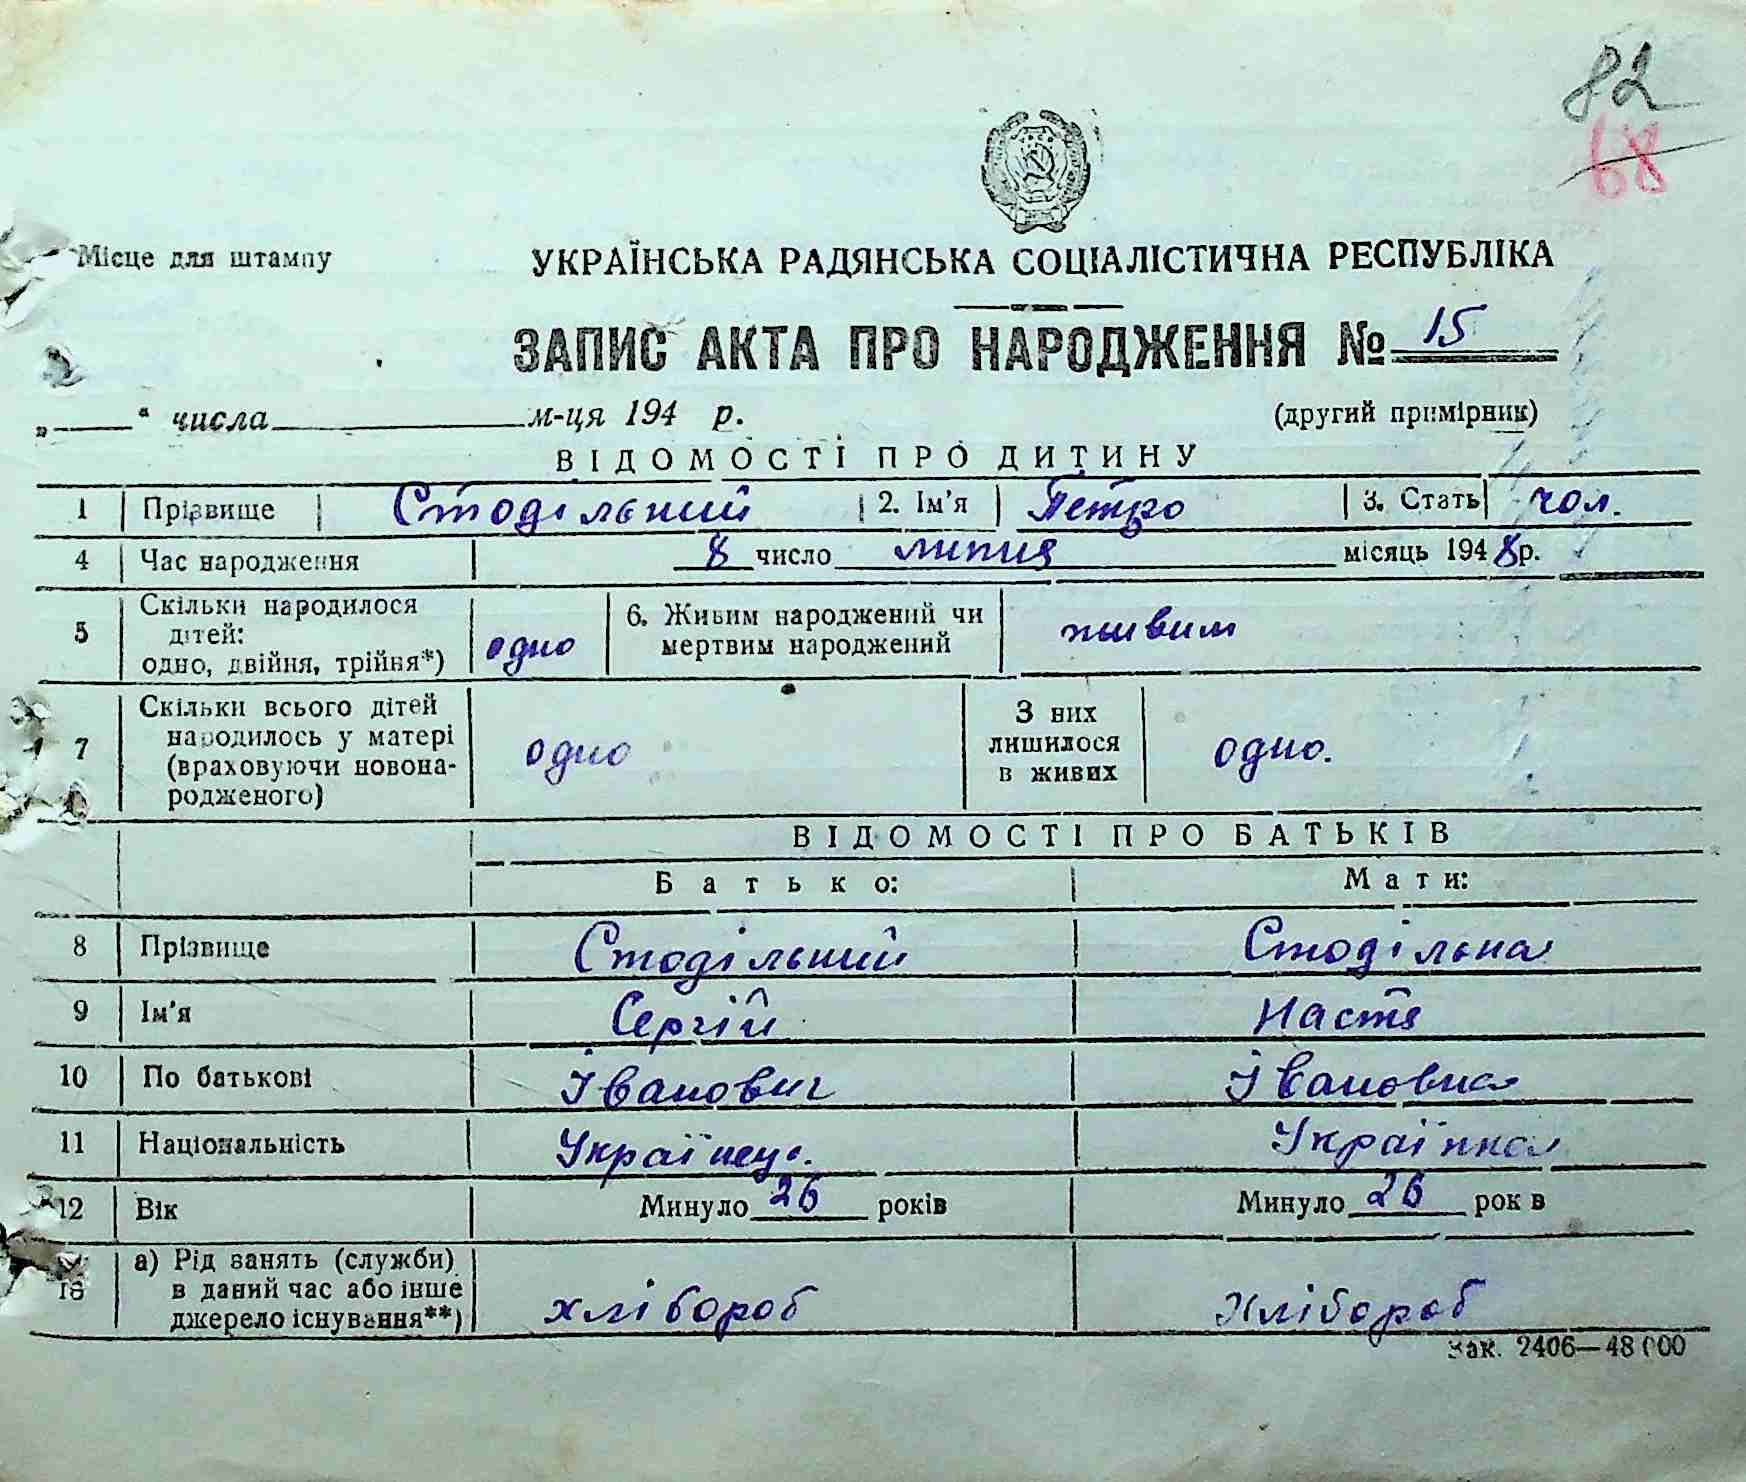 82
68
Місце для штампу
УКРАЇНСЬКА РАДЯНСЬКА СОЦІАЛІСТИЧНА РЕСПУБЛІКА
ЗАПИС АКТА ПРО НАРОДЖЕННЯ № 15
„ “ числа м-ця 194 р. (другий примірник)
ВІДОМОСТІ ПРО ДИТИНУ
1 Прізвище Стодільний 2. Ім'я Петро 3. Стать чол.
4 Час народження 8 число липня місяць 1948 р.
5 Скільки народилося дітей: одно, двійня, трійня*) одно 6. Живим народжений чи мертвим народжений живим
7 Скільки всього дітей народилось у матері (враховуючи новонародженого) одно З них лишилося в живих одно.
ВІДОМОСТІ ПРО БАТЬКІВ
Батько: Мати:
8 Прізвище Стодільний Стодільна
9 Ім'я Сергій Настя
10 По батькові Іванович Івановна
11 Національність Українець. Українка
12 Вік Минуло 26 років Минуло 26 рок в
13 а) Рід занять (служби) в даний час або інше джерело існування**) хлібороб Хлібороб
Зак. 2406—48000